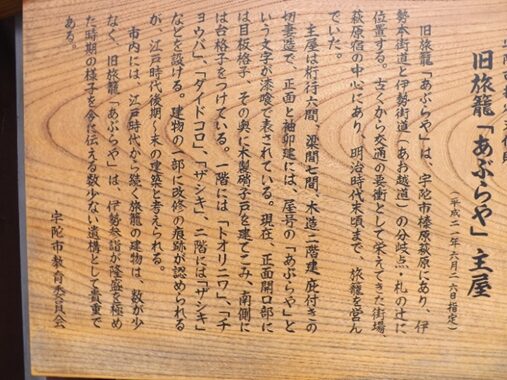 旧旅籠「あぶらや」主屋
(平成二一年六月二六日指定)
旧旅籠「あぶらや」は、宇陀市榛原萩原にあり、伊
勢本街道と伊勢街道(あお越道)の分岐点・札の辻に
位置する。古くから交通の要衝として栄えてきた街場、
萩原宿の中心にあり、明治時代末頃まで、旅籠を営ん
でいた。
主屋は桁行六間、梁間七間、木造二階建、庇付きの
切妻造で、正面と袖卯建には、屋号の「あぶらや」と
いう文字が漆喰で表されている。現在、正面開口部に
は目板格子、その奥に木製硝子戸を建てこみ、南側に
は台格子をつけている。一階には「トオリニワ」、「チ
ョウバ」、「ダイドコロ」、「ザシキ」、二階には「ザシキ」
などを設ける。建物の一部に改修の痕跡が認められる
が、江戸時代後期~末の建築と考えられる。
市内には、江戸時代から続く旅籠の建物は、数が少
なく、旧旅籠「あぶらや」は、伊勢参詣が隆盛を極め
た時期の様子を今に伝える数少ない遺構として貴重で
ある。
宇陀市教育委員会